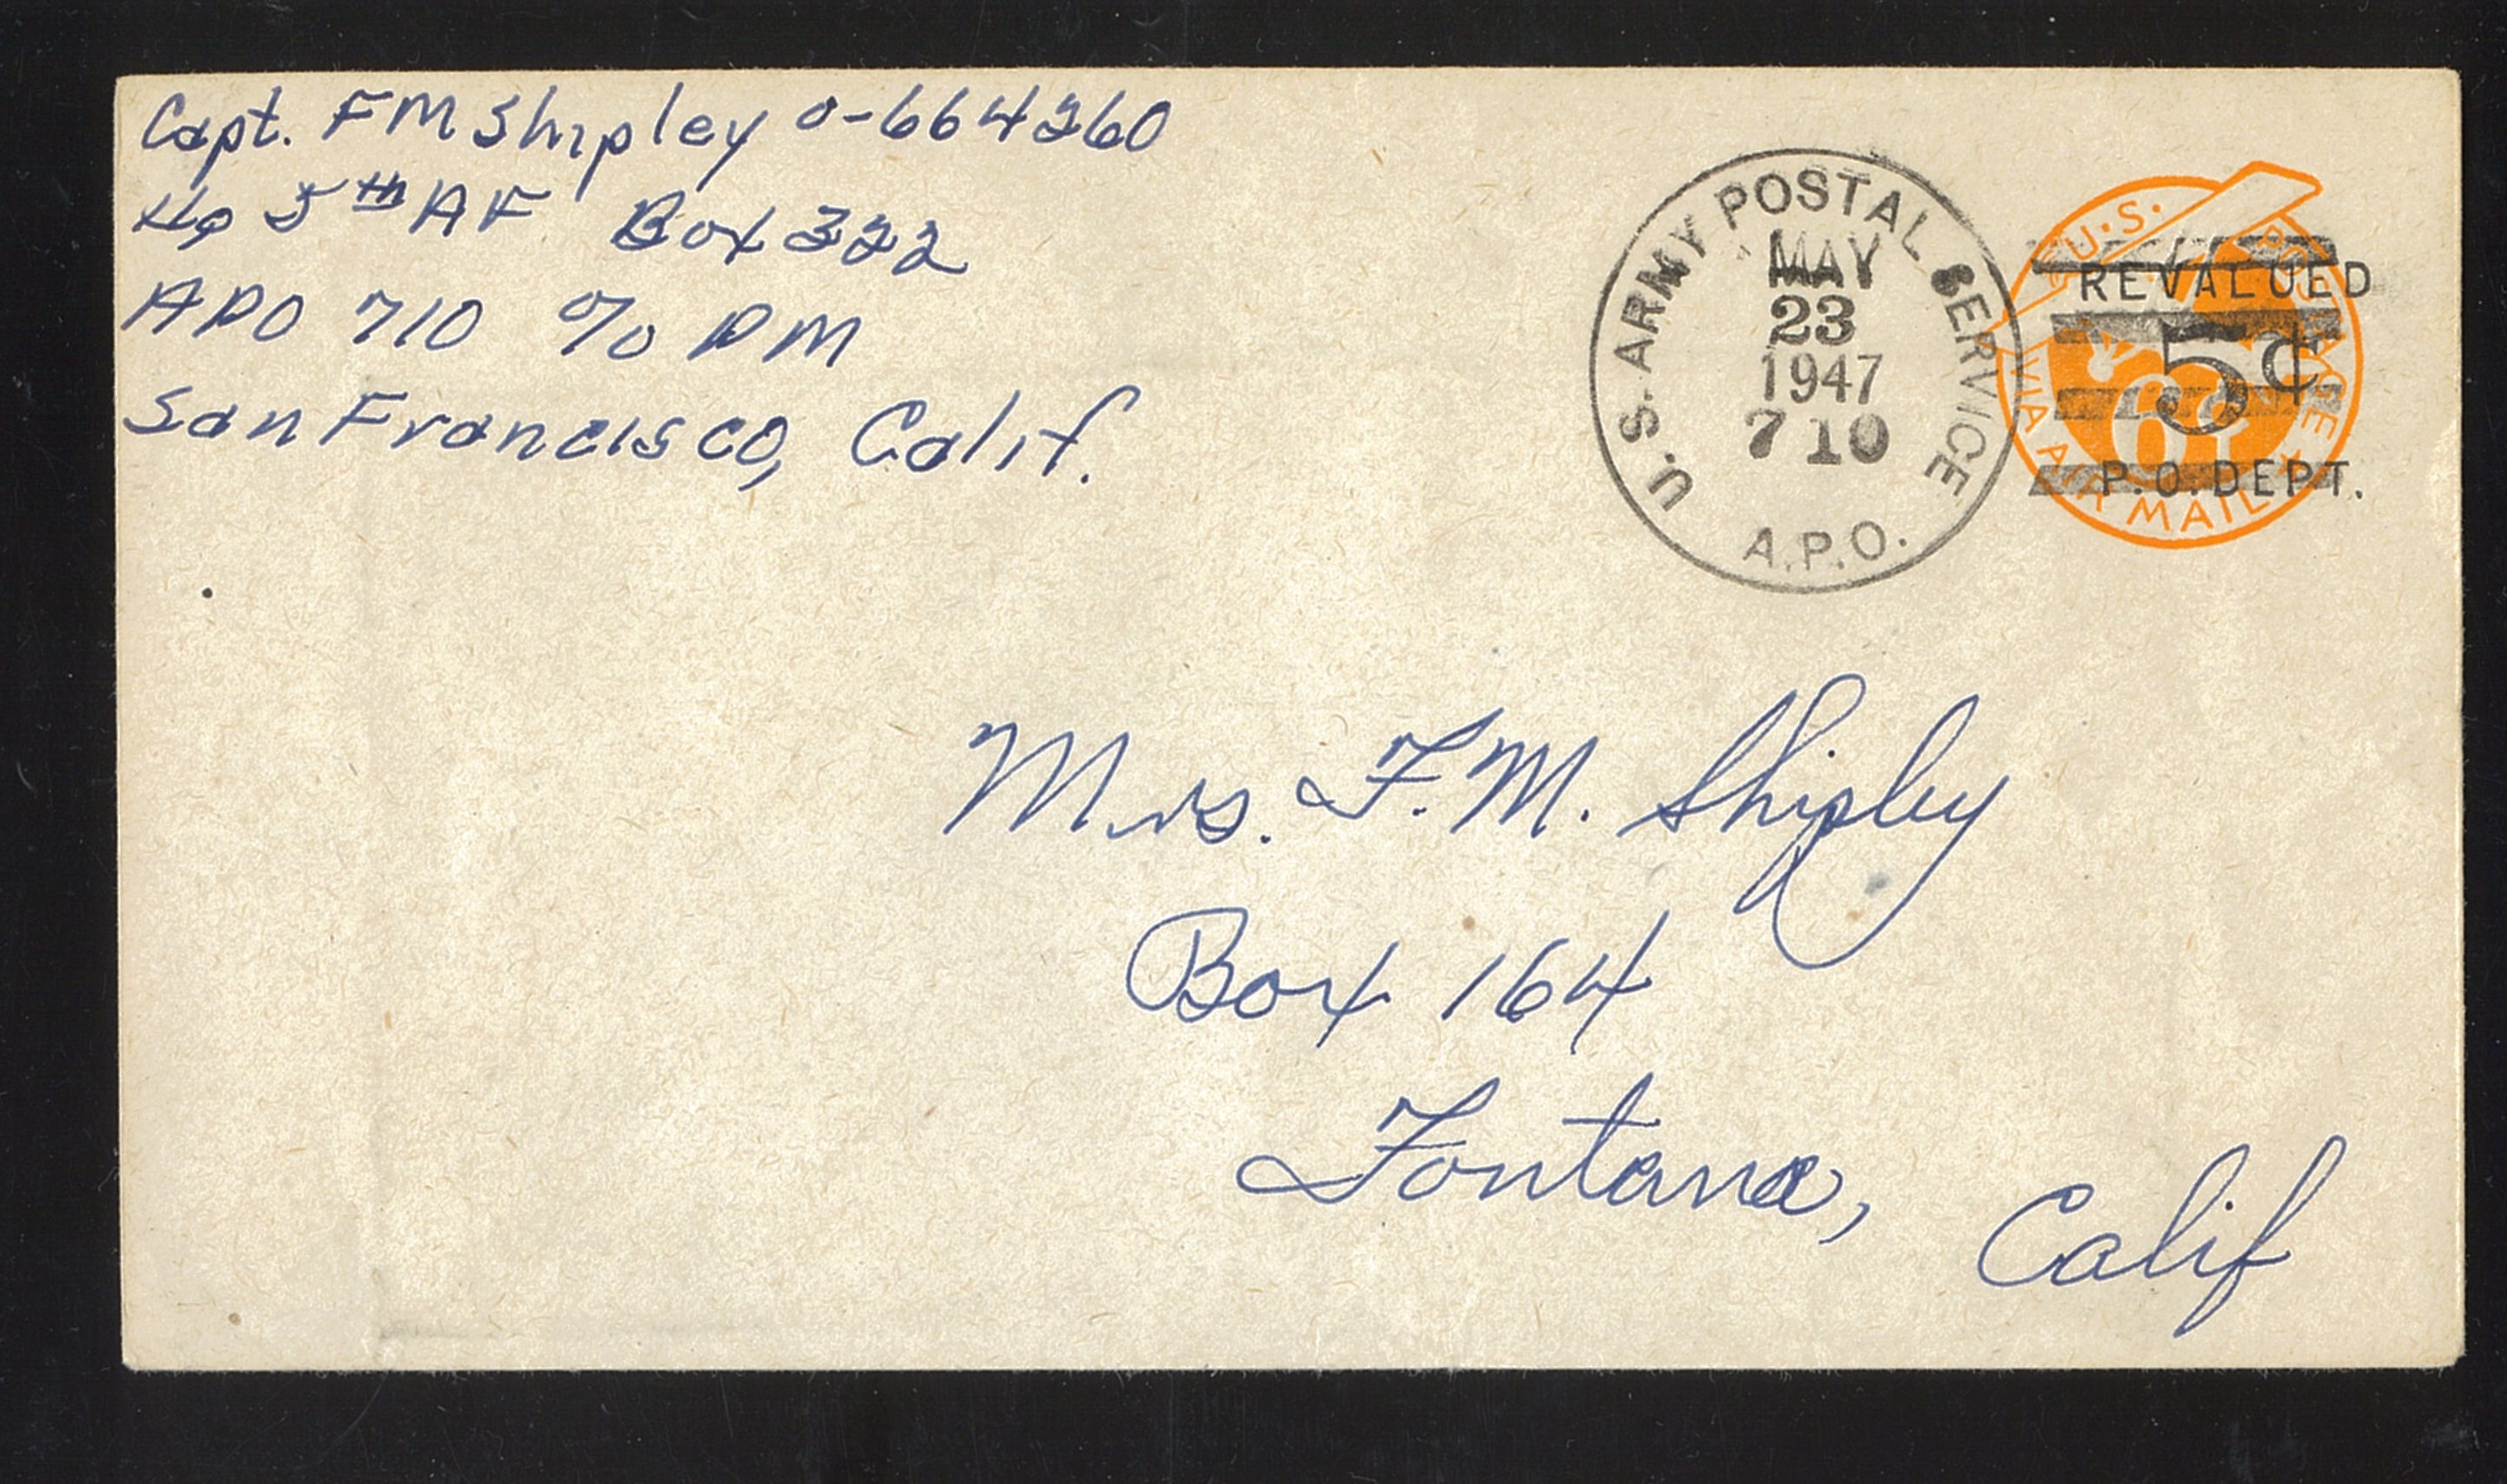 Capt. FM Shipley O-664260
Hq 5th AF Box 322
APO 710 % PM
San Francisco, Calif.
U.S. ARMY POSTAL SERVICE
MAY
23
1947
7 10
A.P.O.
U.S. POSTAGE
REVALUED
5¢
6¢
P.O. DEPT.
VIA AIR MAIL
Mrs. F.M. Shipley
Box 164
Fontana, Calif